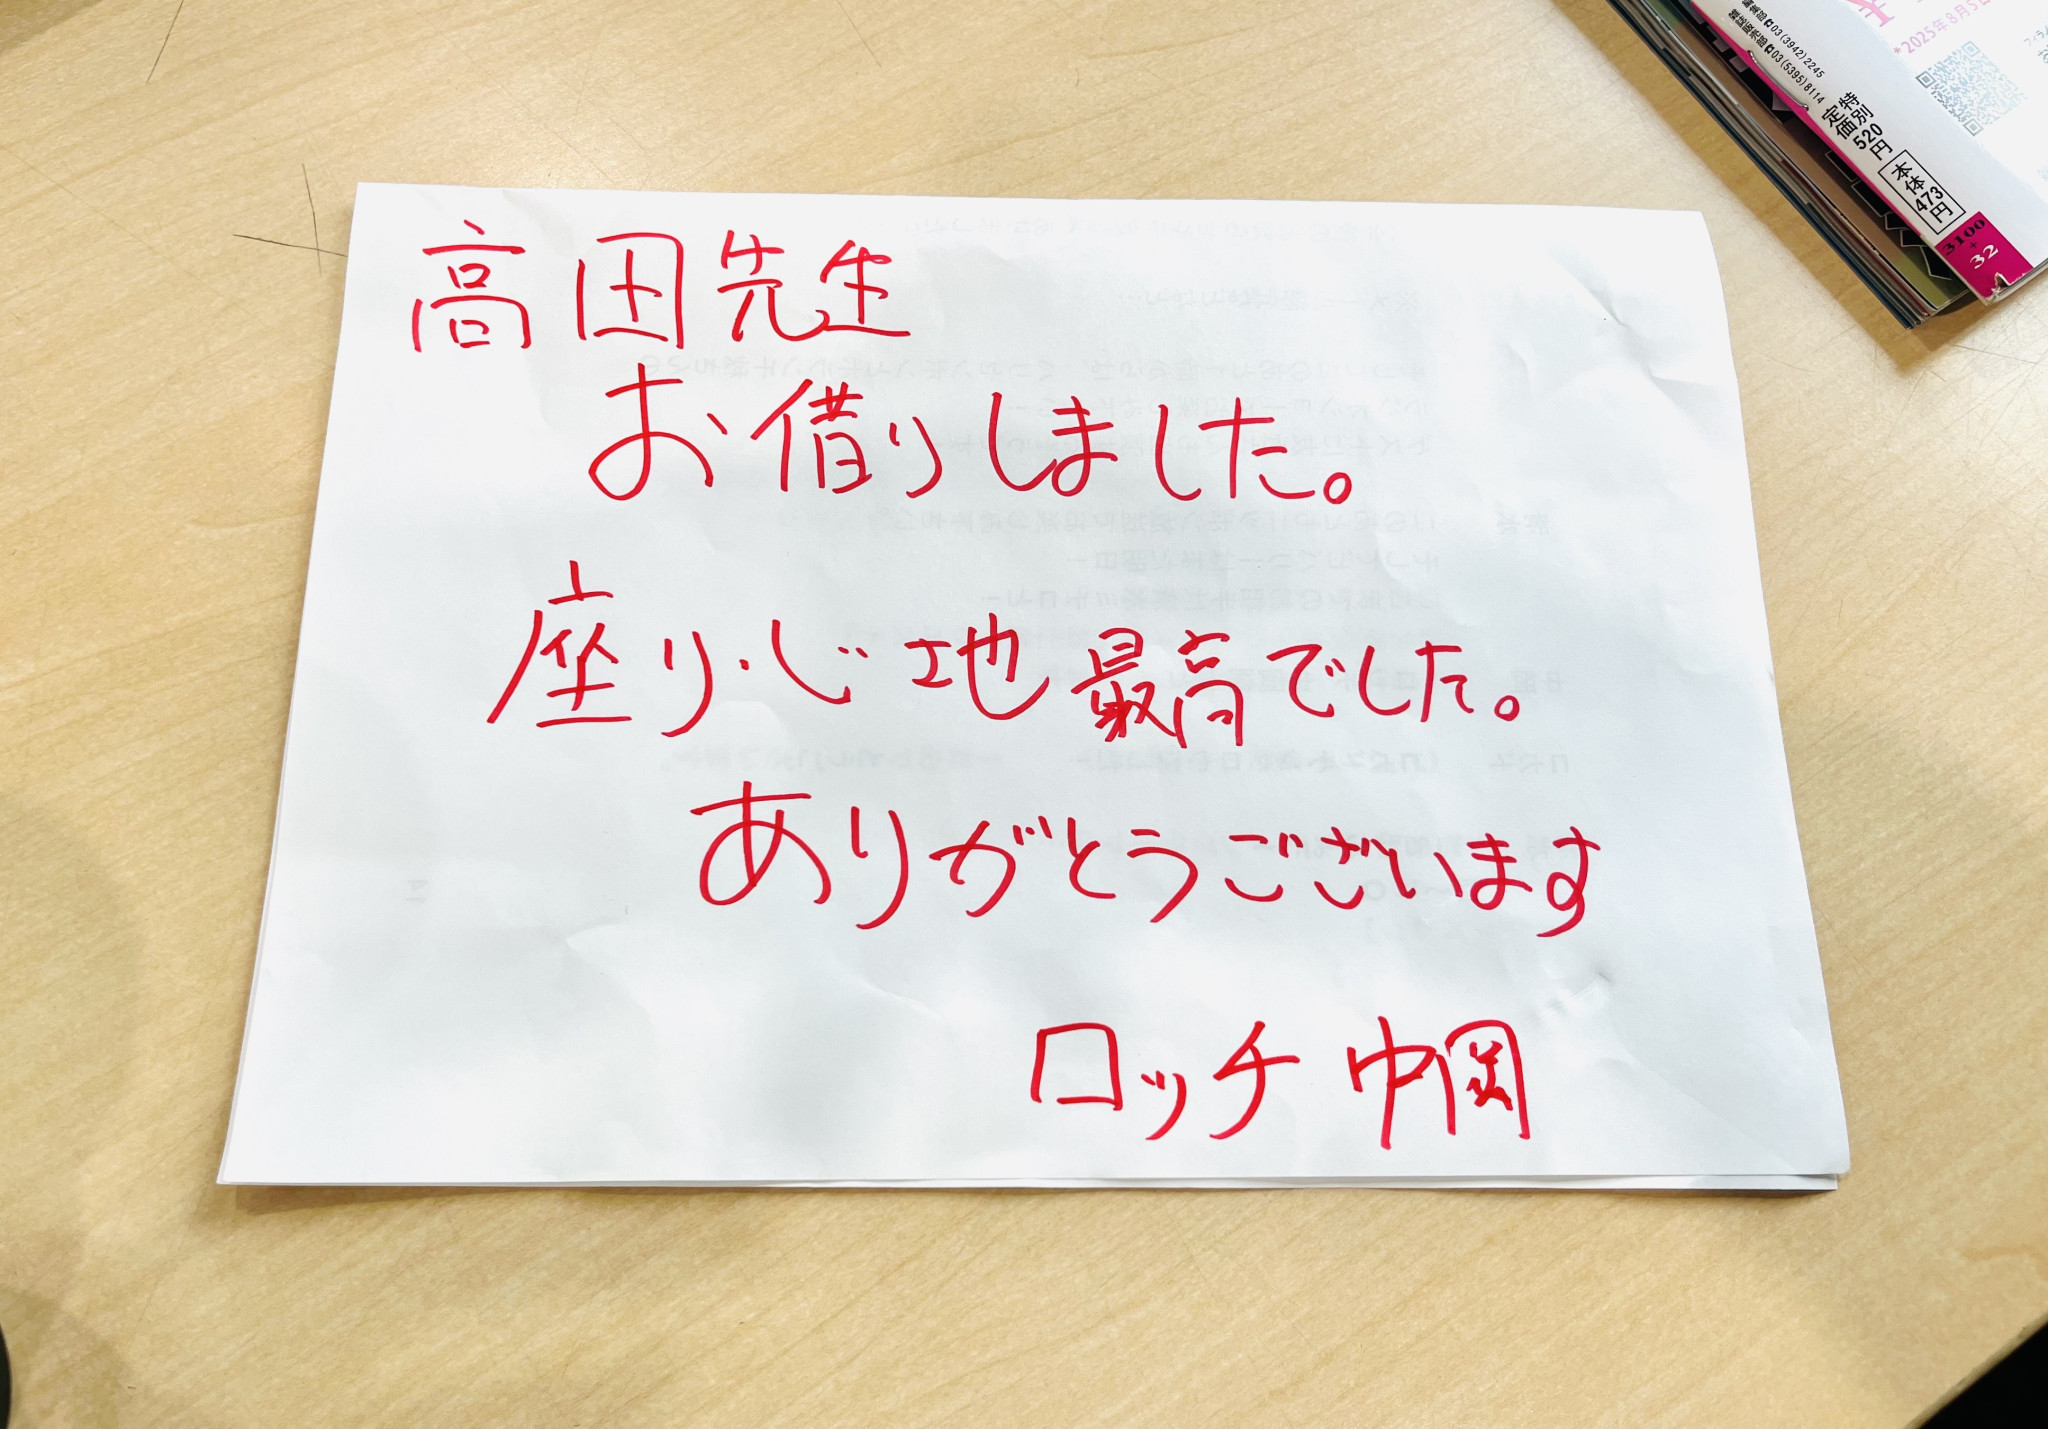 高田先生
お借りしました。
座りじ地最高でした。
ありがとうございます
ロッチ 中岡
*2025年8月5日
編集部☎03(3942)2245
雑誌販売部☎03(5395)8114
特別
定価520円
本体473円
3100
+
32